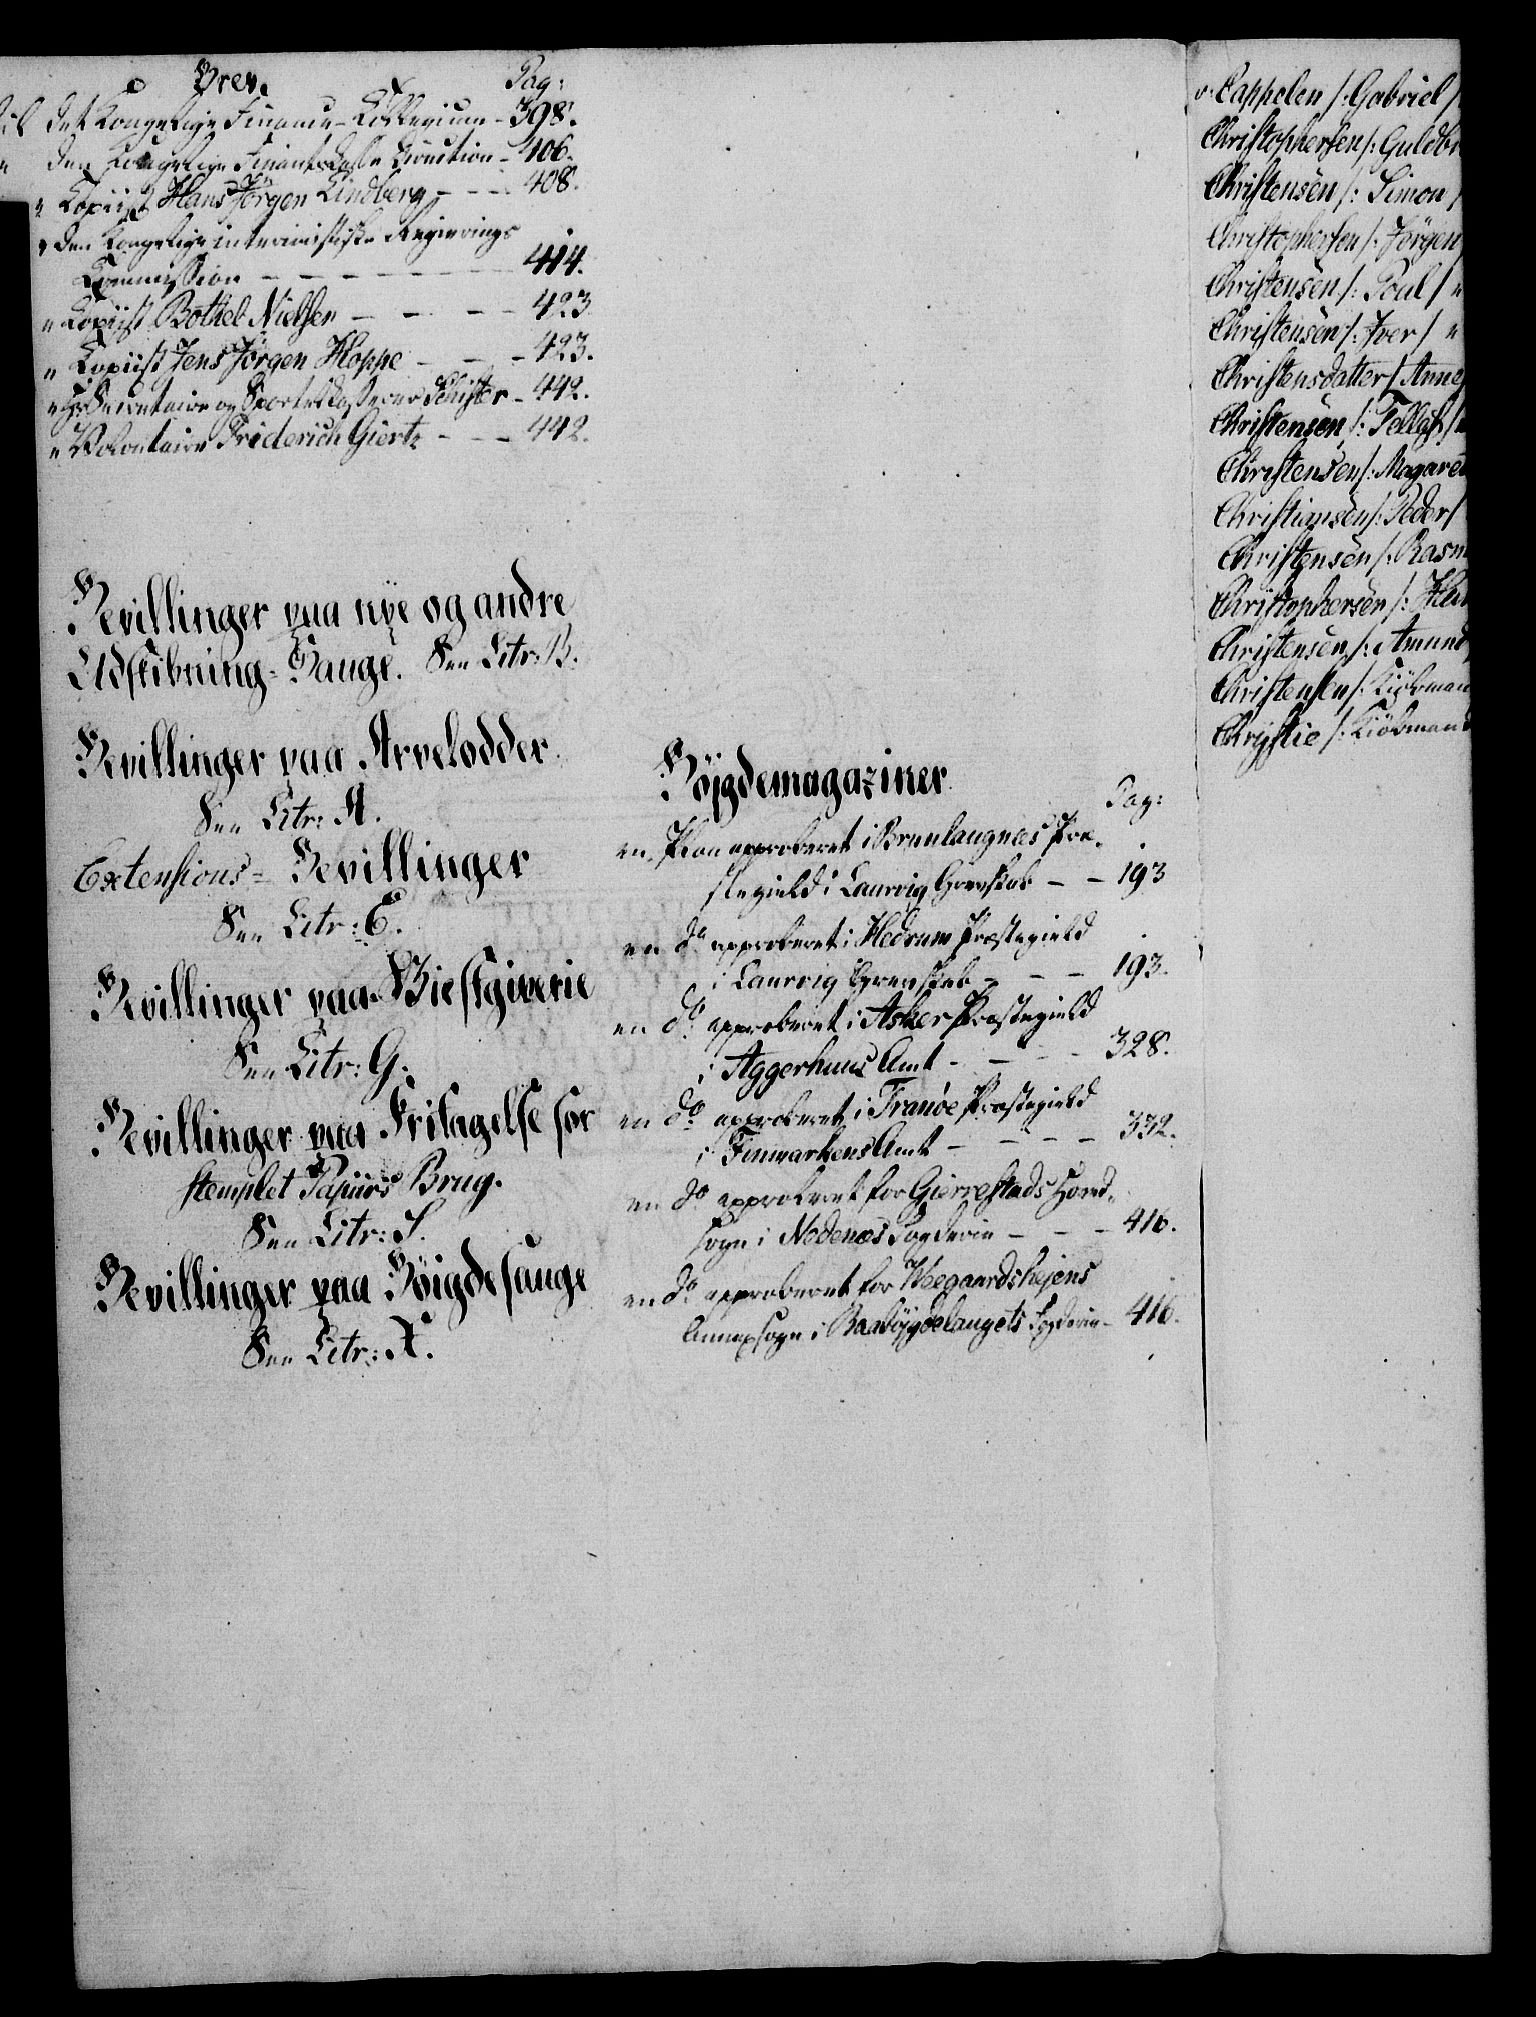 Brev. Pag:
til det Kongelige Finance-Collegium - 398.
" den Kongelige Finantskasse Direction - 406.
" Copiist Hans Jörgen Lindberg - - - 408.
" den Kongelige interimistiske Regierings
Commission - - - - - - - - 414.
" Copiist Bothel Nielsen - - - - - 423.
" Copiist Jens Jörgen Hoppe - - - 423.
" Secretaire og Sportelkasserer Schifter - 442.
" Volontaire Friderich Giertz - - - 442.
Bevillinger paa nye og andre
Udskibning-Sauge. See Litr: B.
Bevillinger paa Arvelodder.
See Litr: A.
Extensions-Bevillinger
See Litr: E.
Bevillinger paa Giestgiverie
See Litr: G.
Bevillinger paa Fritagelse for
stemplet Papiirs Brug.
See Litr: S.
Bevillinger paa Böigdesauge
See Litr: X.
Böjgdemagaziner.
Pag:
en Plan approberet i Brunlaugnæs Præ-
stegield i Laurvig Grevskab - - 193
en do approberet i Hedrum Præstegield
i Laurvig Grevskab - - - 193.
en do approberet i Asker Præstegield
i Aggerhuus Amt - - - - 328.
en do approberet i Tranöe Præstegield
i Finmarkens Amt - - - - 332.
en do approberet for Gierrestads Hoved-
sogn i Nedenæs Fogderie - - - 416.
en do approberet for Weegaardshejens
Annexsogn i Raaböjgdelaugets Fogderie - 416.
v: Cappelen /: Gabriel /
Christophersen /: Guldbr
Christensen /: Simon /
Christophersen /: Jörgen
Christensen /: Poul / "
Christensen /: Iver / "
Christensdatter / Anne
Christensen /: Tellef /
Christensen /: Magaret
Christiansen /: Peder /
Christensen /: Rasm
Christophersen /: Han
Christensen /: Amund
Christensen /: Kiöbman
Chrystie /: Kiöbmand